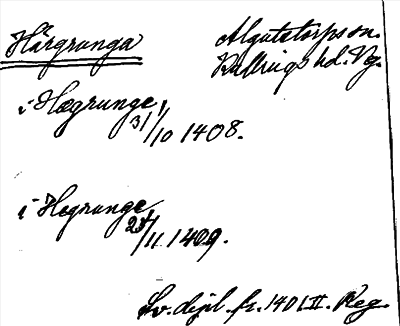 Härgrunga
Algutstorps sn.
Kullings hd. Vg.
i Hægrunge,
31/10 1408.
i Hegrunge,
24/11 1409.
Sv. dipl. fr. 1401 II. Reg.